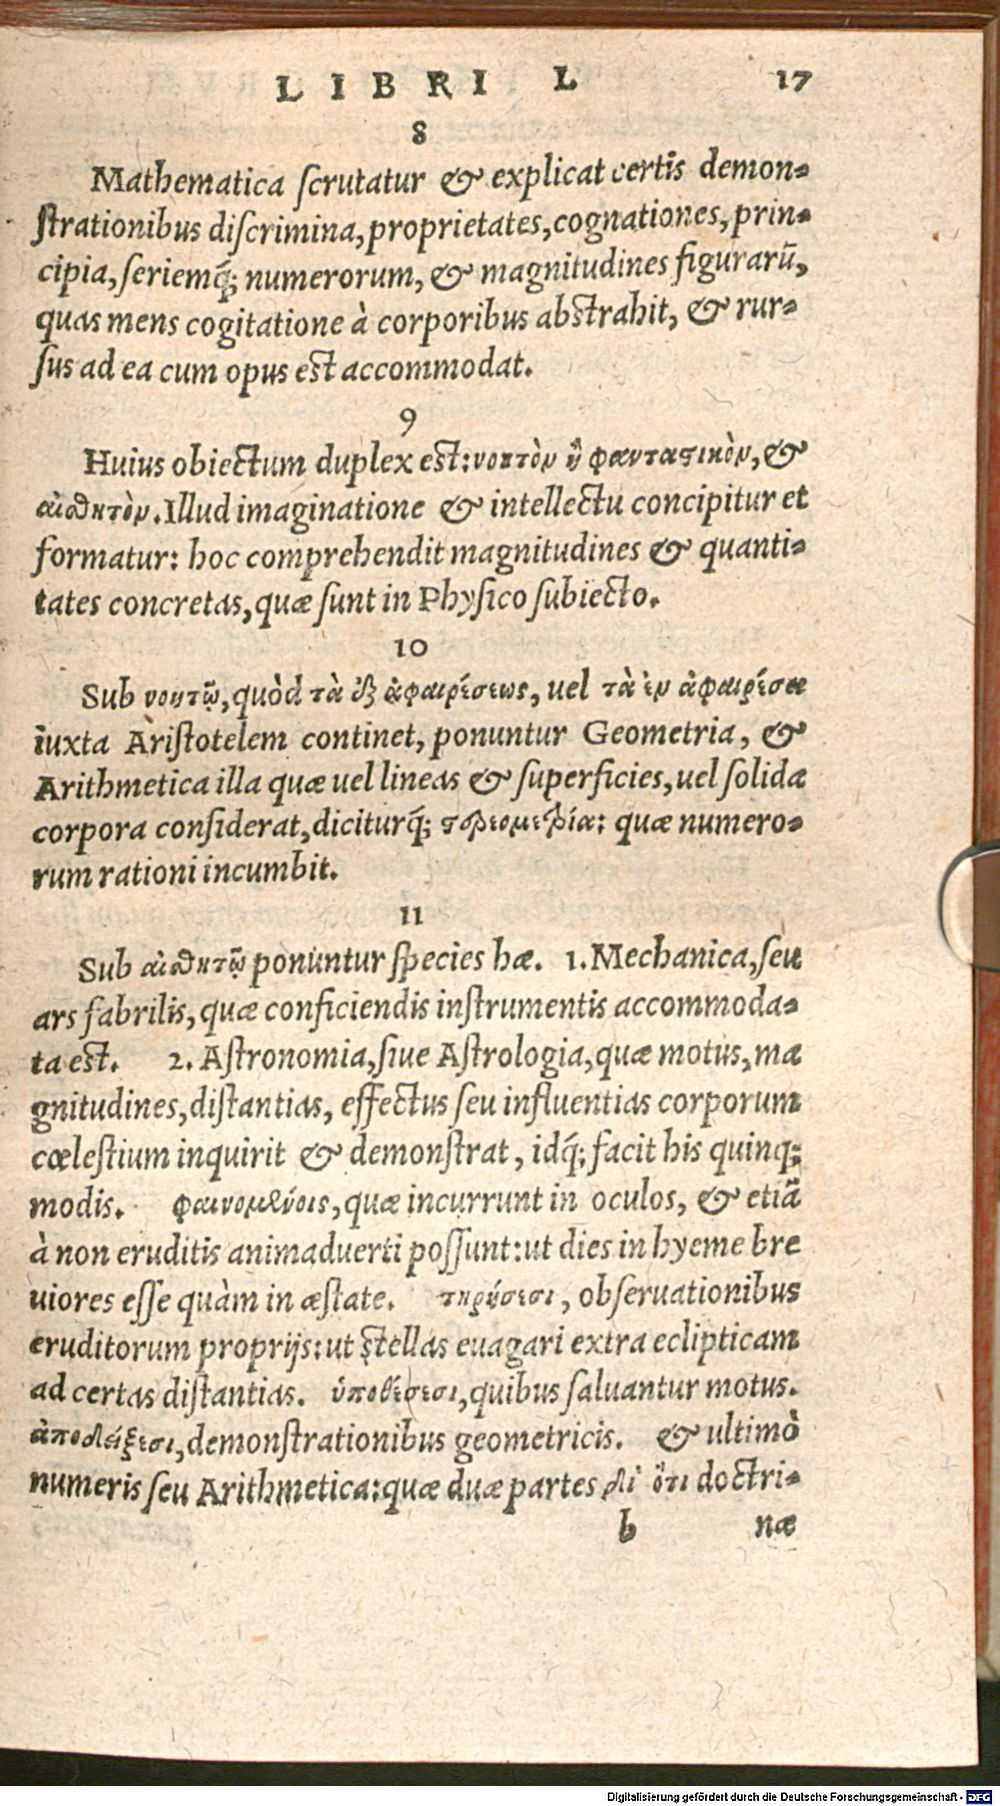 LIBRI I. 17
8
Mathematica ſcrutatur & explicat certis demon-
ſtrationibus diſcrimina, proprietates, cognationes, prin-
cipia, ſeriemq́; numerorum, & magnitudines figurarū,
quas mens cogitatione à corporibus abſtrahit, & rur-
ſus ad ea cum opus eſt accommodat.
9
Huius obiectum duplex eſt: νοητὸν ἢ φανταστικὸν, &
αἰσθητὸν. Illud imaginatione & intellectu concipitur et
formatur: hoc comprehendit magnitudines & quanti-
tates concretas, quæ ſunt in Phyſico ſubiecto.
10
Sub νοητῷ, quòd τὰ ἐξ ἀφαιρέσεως, uel τὰ ἐν ἀφαιρέσει
iuxta Ariſtotelem continet, ponuntur Geometria, &
Arithmetica illa quæ uel lineas & ſuperficies, uel ſolida
corpora conſiderat, diciturq́; στερεομετρία: quæ numero-
rum rationi incumbit.
11
Sub αἰσθητῷ ponuntur ſpecies hæ. 1. Mechanica, ſeu
ars fabrilis, quæ conficiendis inſtrumentis accommoda-
ta eſt. 2. Aſtronomia, ſiue Aſtrologia, quæ motus, ma
gnitudines, diſtantias, effectus ſeu influentias corporum
cœleſtium inquirit & demonſtrat, idq́; facit his quinq;
modis. φαινομένοις, quæ incurrunt in oculos, & etiā
à non eruditis animaduerti poſſunt: ut dies in hyeme bre
uiores eſſe quàm in æſtate. τηρήσεσι, obſeruationibus
eruditorum proprijs: ut ſtellas euagari extra eclipticam
ad certas diſtantias. ὑποθέσεσι, quibus ſaluantur motus.
ἀποδείξεσι, demonſtrationibus geometricis. & ultimò
numeris ſeu Arithmetica: quæ duæ partes δι' ὅτι doctri-
b næ
Digitalisierung gefördert durch die Deutsche Forschungsgemeinschaft - DFG